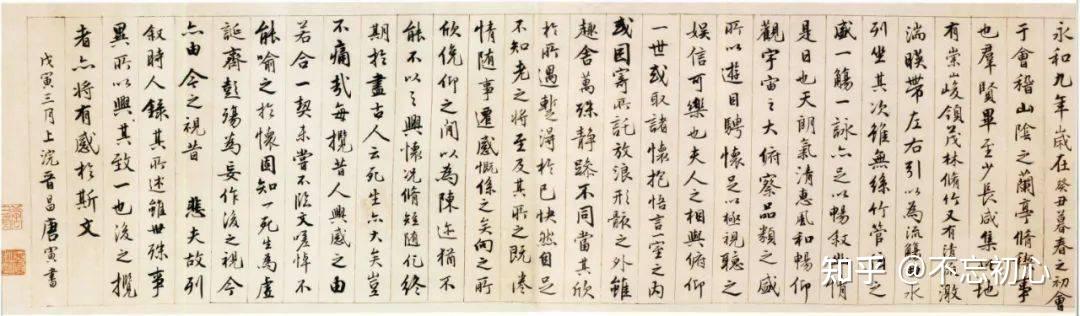 永和九年歲在癸丑暮春之初會
于會稽山陰之蘭亭脩禊事
也羣賢畢至少長咸集此地
有崇峻領茂林脩竹又有清流激
湍暎帶左右引以為流觴曲水
列坐其次雖無絲竹管弦之
盛一觴一詠亦足以暢叙幽情
是日也天朗氣清惠風和暢仰
觀宇宙之大俯察品類之盛
所以遊目騁懷足以極視聽之
娛信可樂也夫人之相與俯仰
一世或取諸懷抱悟言一室之內
或因寄所託放浪形骸之外雖
趣舍萬殊靜躁不同當其欣
於所遇蹔得於己快然自足
不知老之將至及其所之既惓
情隨事遷感慨係之矣向之所
欣俛仰之間以為陳迹猶不
能不以之興懷況脩短隨化終
期於盡古人云死生亦大矣豈
不痛哉每攬昔人興感之由
若合一契未嘗不臨文嗟悼不
能喻之於懷固知一死生為虛
誕齊彭殤為妄作後之視今
亦由今之視昔 悲夫故列
叙時人錄其所述雖世殊事
異所以興其致一也後之攬
者亦將有感於斯文
戊寅三月上浣晉昌唐寅書
知乎 @不忘初心